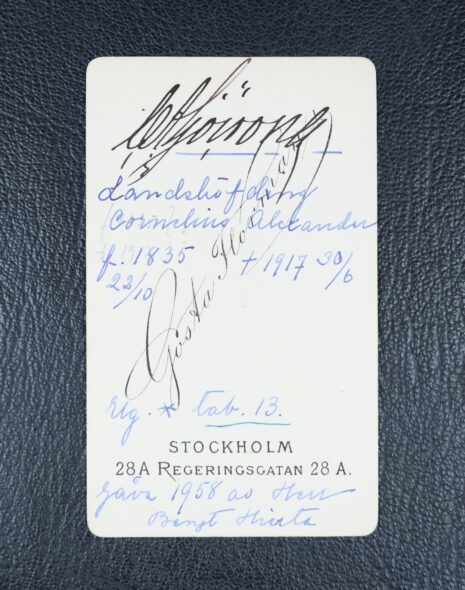 CASjöcrona
Landshöfding
Cornelius Alexander
f. 1835 † 1917 30/6
22/10
Gösta Florman
Elg. * tab. 13.
STOCKHOLM
28A REGERINGSGATAN 28 A.
Gåva 1958 av Herr
Bengt Hierta